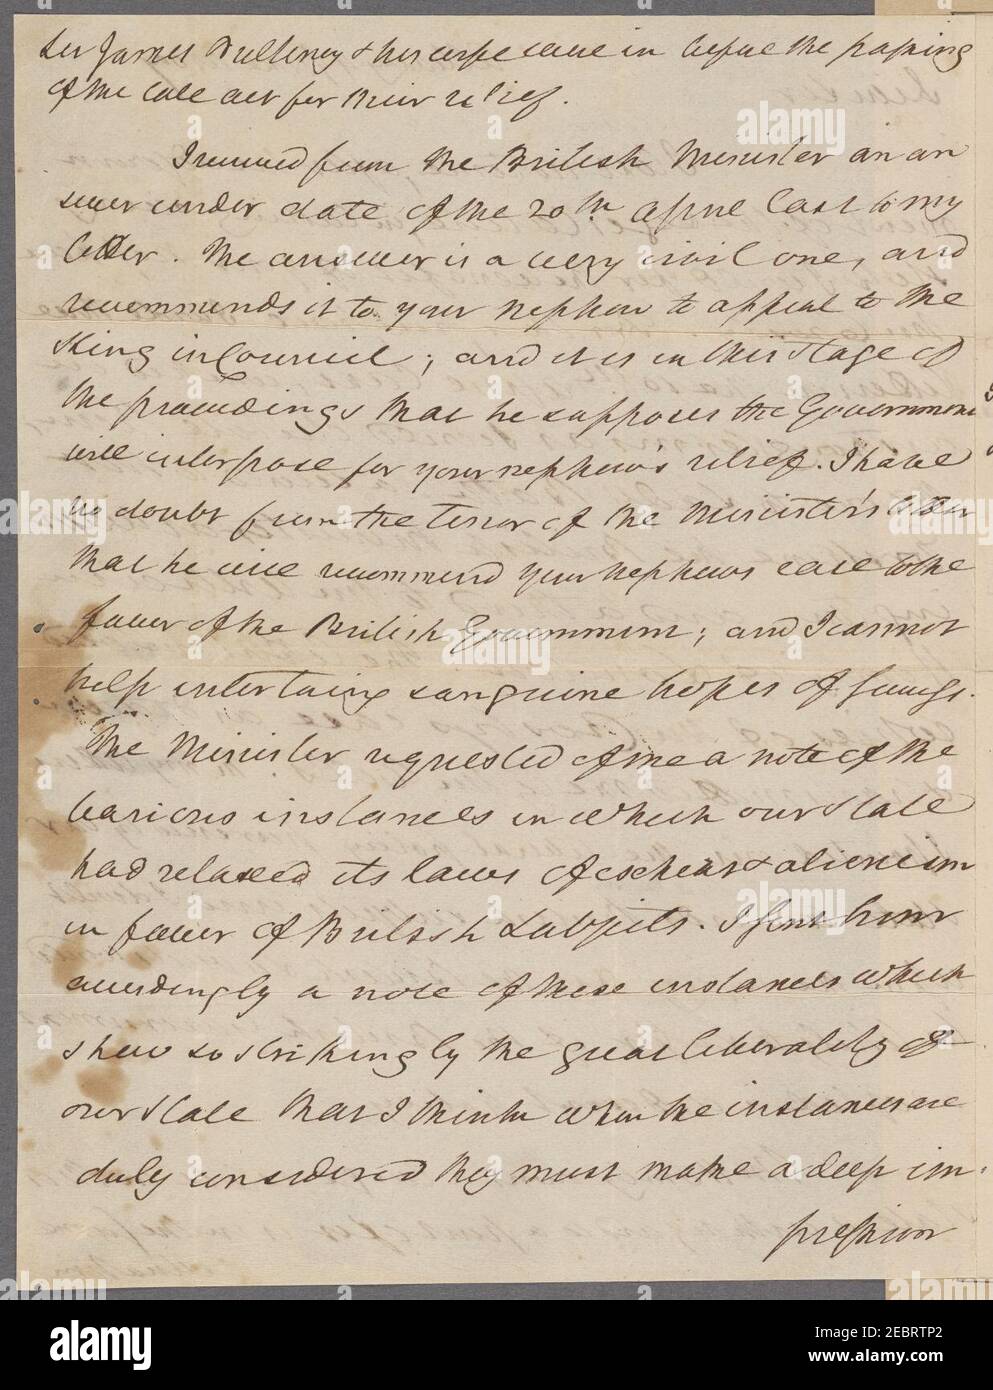 Sir James Pulteney & his wife came in before the passing
of the late act for their relief.
I received from the British Minister an an
swer under date of the 20th. April last to my
letter. The answer is a very civil one, and
recommends it to your nephew to appeal to the
King in Council; and it is in this stage of
the proceedings that he supposes the Government
will interpose for your nephew's relief. I have
no doubt from the tenor of the Minister's letter
that he will recommend your nephews case to the
favor of the British Government; and I cannot
help entertaing sanguine hopes of
The Minister requested of me a note of the
various instances in which our State
had relaxed its laws of escheat & alienism
in favor of British Subjects. I sent him
accordingly a note of these instances which
shew so strikingly the great liberality of
our State that I think when the instances are
duly considered they must make a deep im-
pression
alamy
Image ID: 2EBRTP2
www.alamy.com